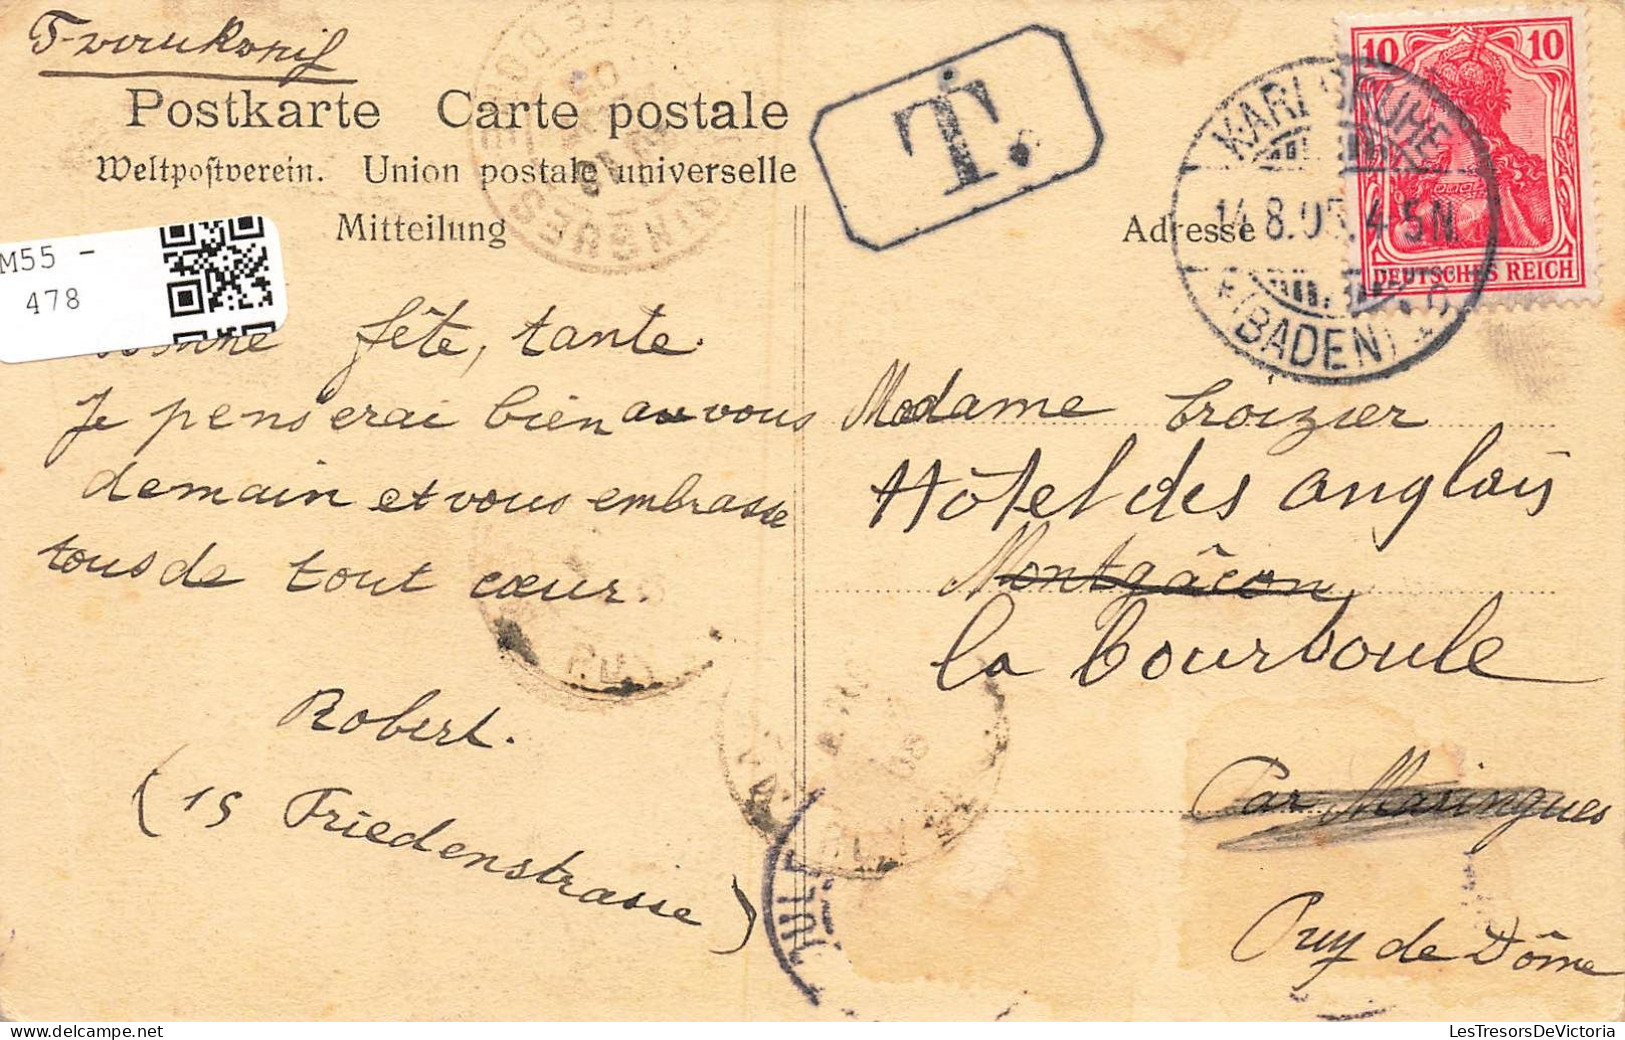 Frankreich
Postkarte Carte postale
Weltpostverein. Union postale universelle
Mitteilung
Adresse
T.
10 10
DEUTSCHES REICH
KARLSRUHE
14.8.05. 4-5N.
(BADEN)
M55 -
478
fête, tante.
Je penserai bien a vous
demain et vous embrasse
tous de tout cœur.
Robert.
(15 Friedenstrasse)
Madame Croizier
Hôtel des anglais
Montgâcon
la bourboule
Par Maringues
Puy de Dôme
LesTresorsDeVictoria